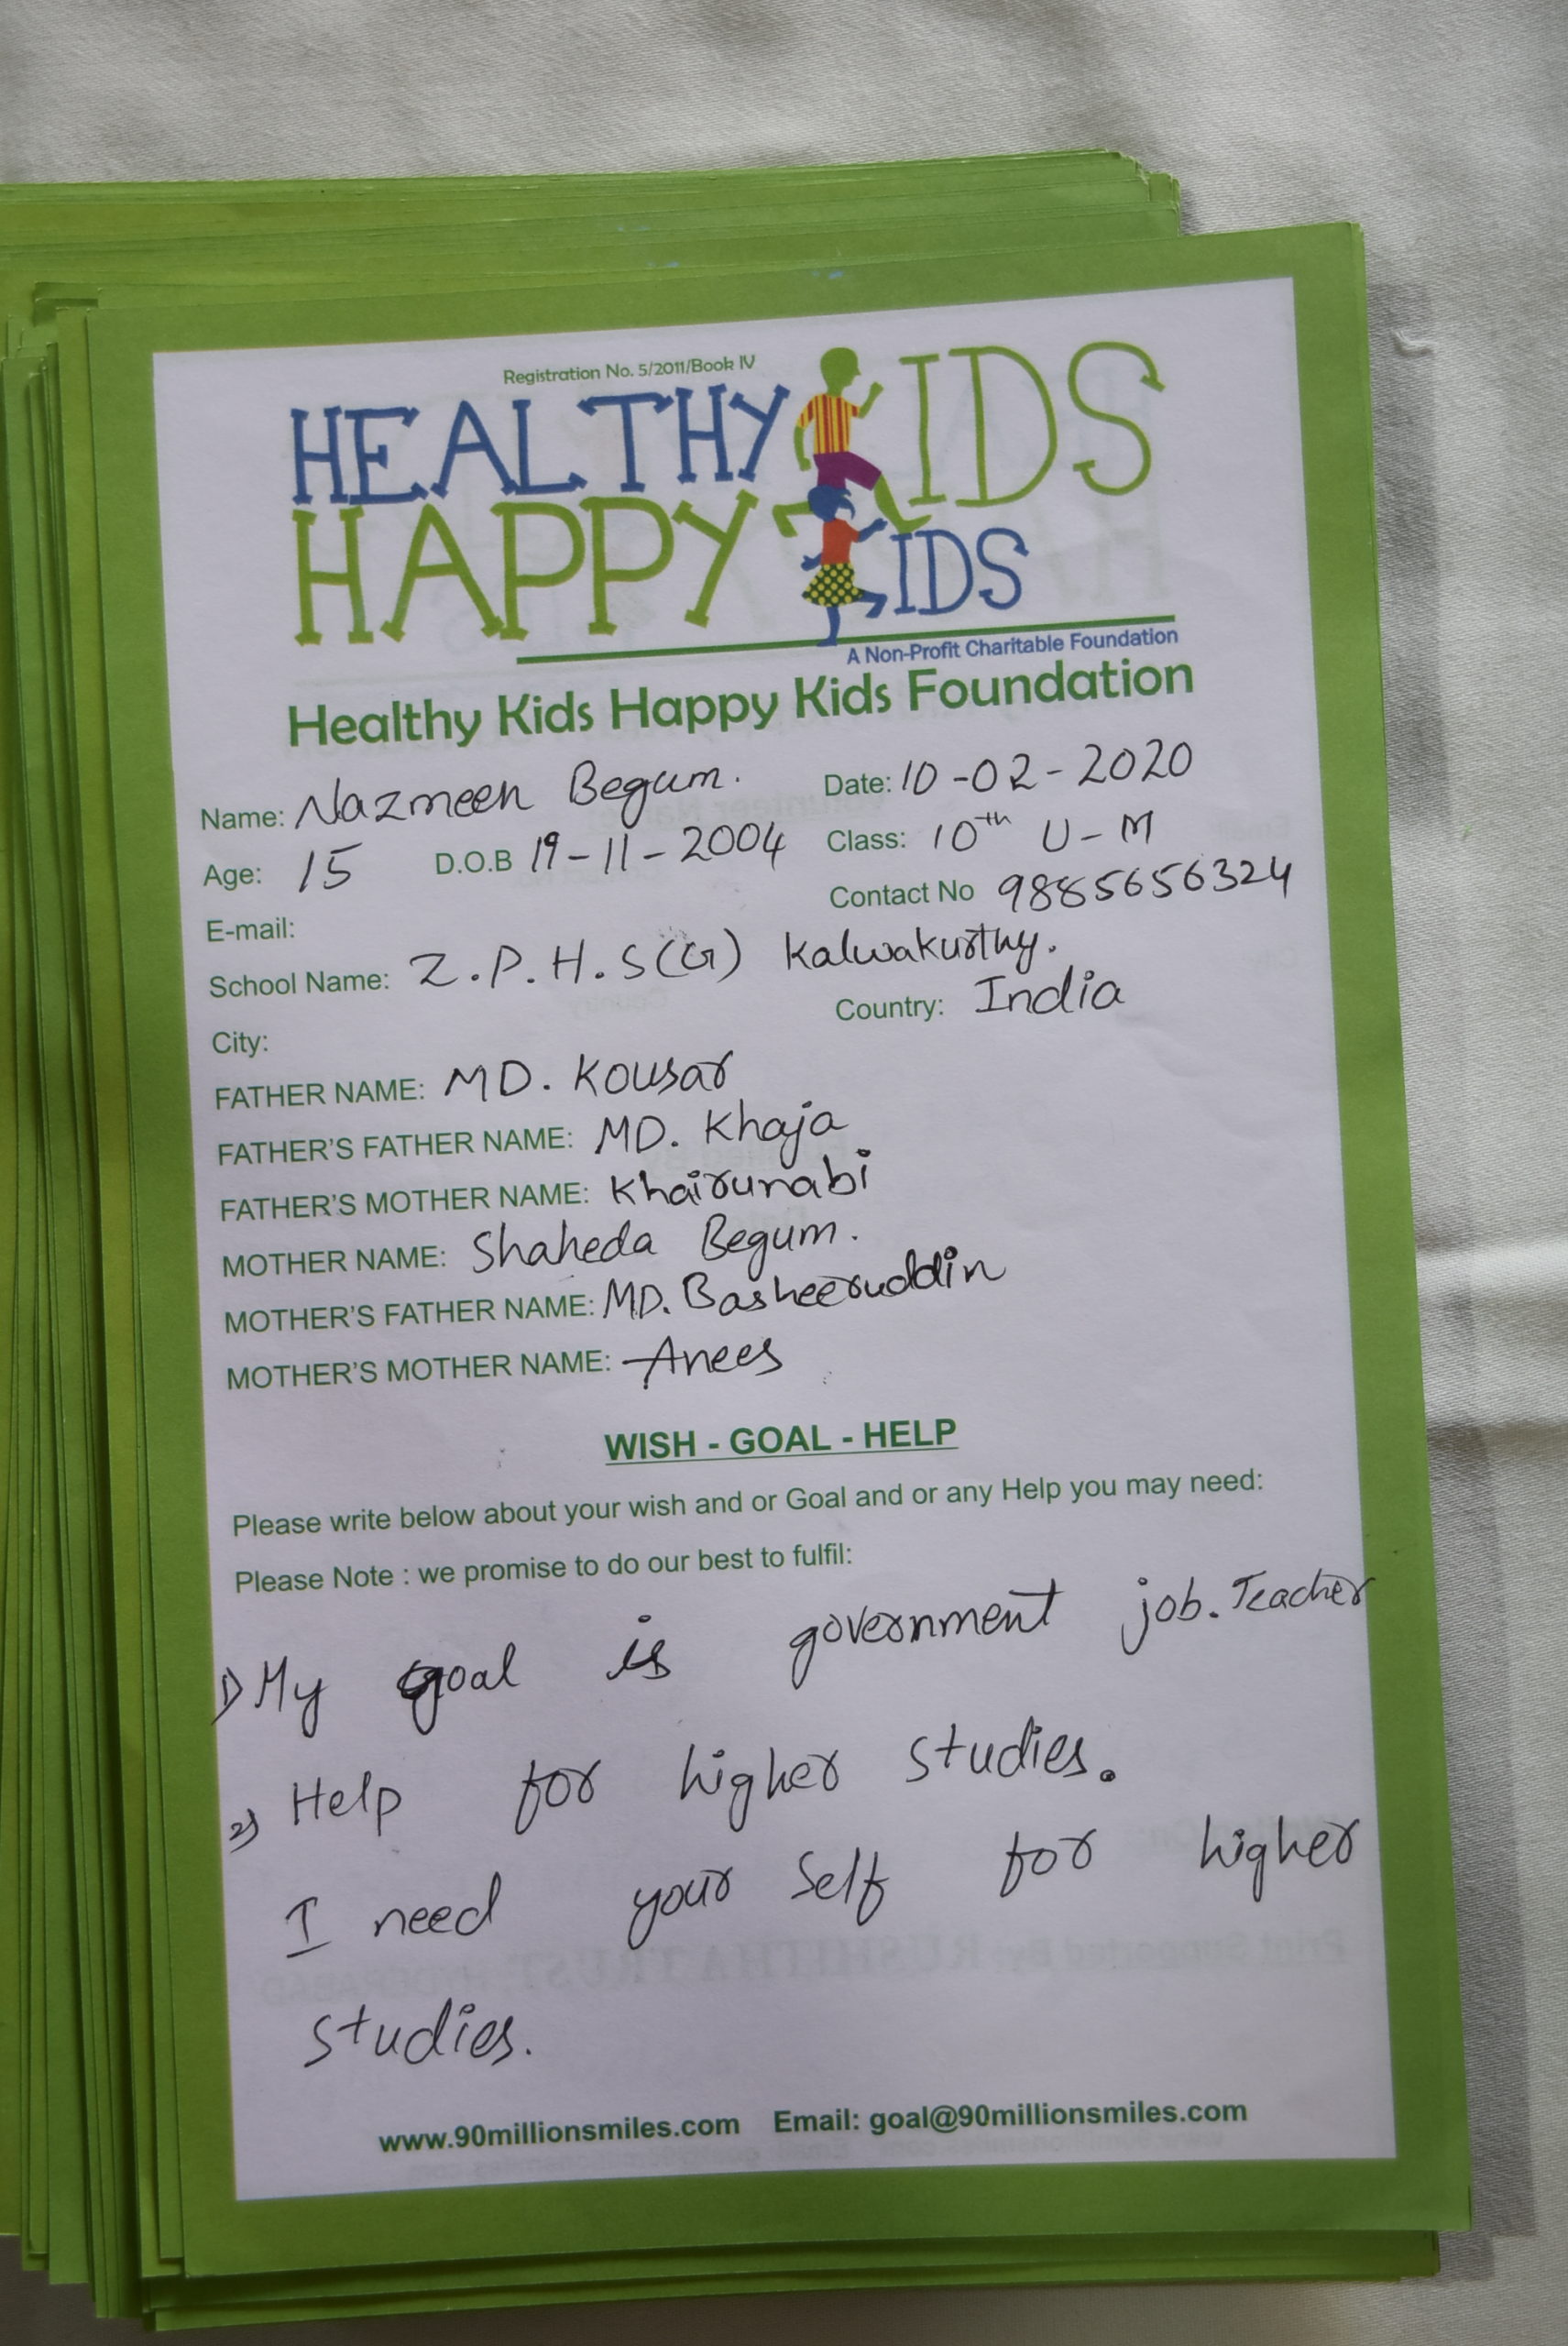 Registration No. 5/2011/Book IV
HEALTHY KIDS
HAPPY KIDS
A Non-Profit Charitable Foundation
Healthy Kids Happy Kids Foundation
Name: Nazmeen Begum. Date: 10-02-2020
Age: 15 D.O.B 19-11-2004 Class: 10th U-M
E-mail: Contact No 9885656324
School Name: Z.P.H.S(G) Kalwakurthy.
City: Country: India
FATHER NAME: MD. Kousar
FATHER'S FATHER NAME: MD. Khaja
FATHER'S MOTHER NAME: Khairunabi
MOTHER NAME: Shaheda Begum.
MOTHER'S FATHER NAME: MD. Basheeruddin
MOTHER'S MOTHER NAME: Anees
WISH - GOAL - HELP
Please write below about your wish and or Goal and or any Help you may need:
Please Note : we promise to do our best to fulfil:
1) My goal is government job. Teacher
2) Help for higher studies.
I need your Self for higher
studies.
www.90millionsmiles.com Email: goal@90millionsmiles.com